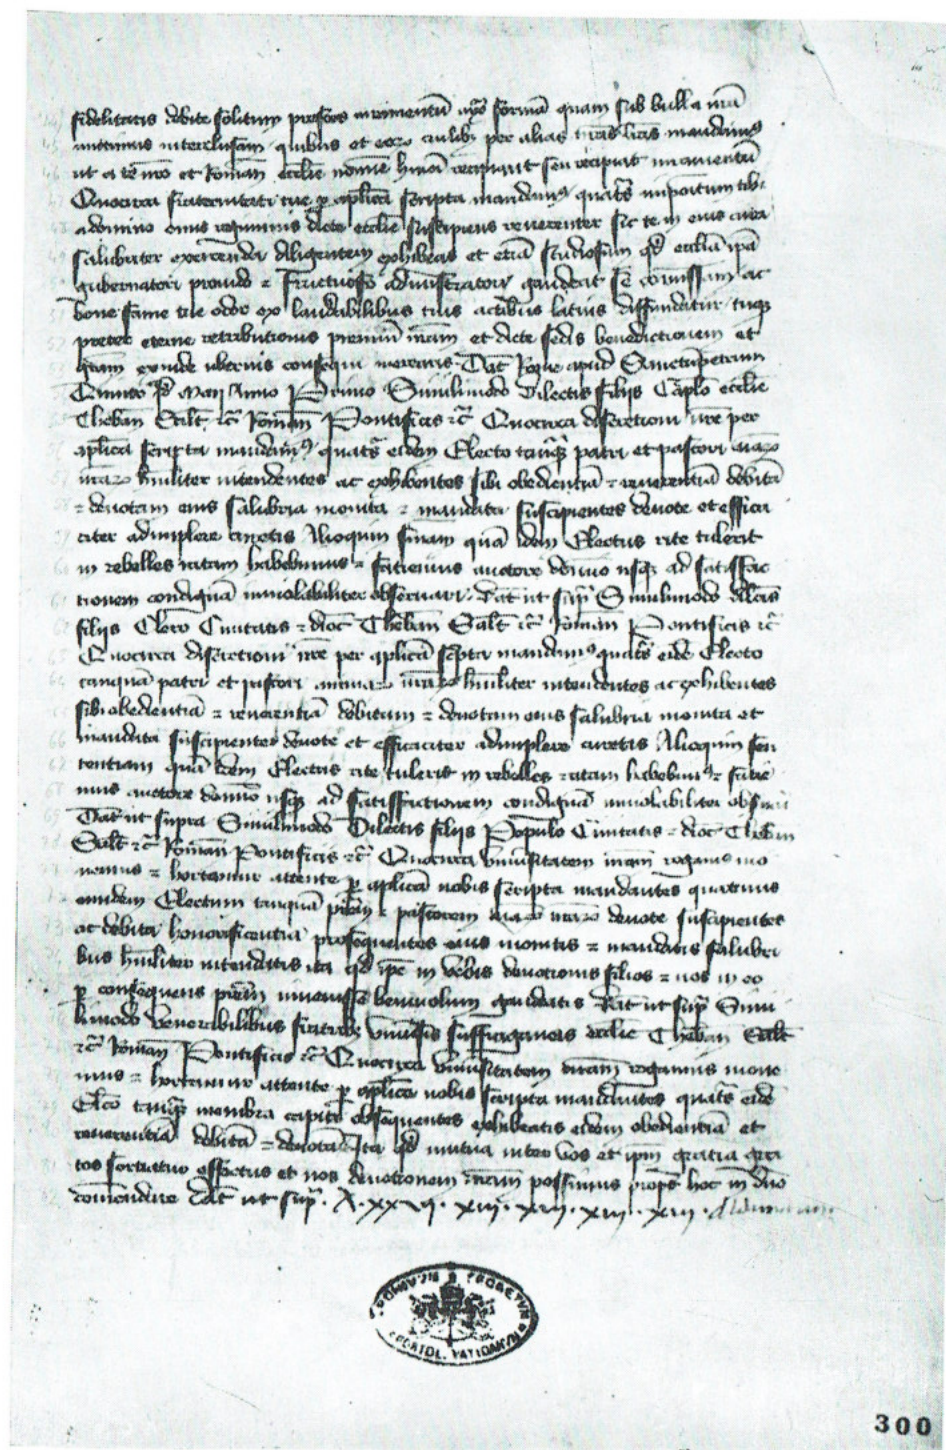 fidelitatis debite solitum prestes iuramentū iuxta formā quam sub bulla nrā
mittimus interclusam quibus et eorū cuilibet per alias nrās lras mandamus
ut a te nrō et Romane ecclie nomine hmōi recipiant seu recipiat iuramentū
Quocirca fraternitati tue p aplica scripta mandamus quatus impositum tibi
a domino onus regiminis dicte ecclie suscipiens reverenter sic te in eius cura
salubriter exercenda diligentem exhibeas et etiā studiosum qd ecclia ipa
gubernatori provido et fructuoso administratori gaudeat se comissam ac
bone fame tue odor ex laudabilibus tuis actibus latius diffundatur tuqz
preter eterne retributionis premiū nram et dicte sedis benedictionem et
gram exinde uberius consequi merearis Dat Rome apud Sanctumpetrum
Quinto Maii Anno Primo Similimodo Dilectis filijs Caplo ecclie
Theban Salt etc Roman Pontificis etc Quocirca discretioni vre per
aplica scripta mandamus quatus eidem Electo tanqz patri et pastori aiarū
vrarū humiliter intendentes ac exhibentes sibi obedientiā et reverentiā debitā
et devotam eius salubria monita et mandata suscipientes devote et effica
citer adimplere curetis Alioquin sniam quā idem Electus rite tulerit
in rebelles ratam habebimus et faciemus auctore domino usqz ad satisfac
tionem condignā inviolabiliter observari Dat ut sup Similimodo dilectis
filijs Clero Civitatis et dioc Theban Salt etc Roman Pontificis etc
Quocirca discretioni vre per aplica scripta mandamus quatus eidē Electo
tanquā patri et pastori animarū vrarū humiliter intendentes ac exhibentes
sibi obedientiā et reverentiā debitam et devotam eius salubria monita et
mandata suscipientes devote et efficaciter adimplere curetis Alioquin sen
tentiam quā idem Electus rite tulerit in rebelles ratam habebimus et facie
mus auctore domino usqz ad satisfactionem condignā inviolabiliter observari
Dat ut supra Similimodo Dilectis filijs Populo Civitatis et dioc Theban
Salt etc Roman Pontificis etc Quocirca universitatem vram rogamus mo
nemus et hortamur attente p aplica vobis scripta mandantes quatinus
eundem Electum tanquā patrem et pastorem aiarū vrarū devote suscipientes
ac debita honorificentia prosequentes eius monitis et mandatis salubri
bus humiliter intendatis ita qd ipe in vobis devotionis filios et vos in eo
p consequens patrem invenisse benivolum gaudeatis Dat ut sup Simi
limodo Venerabilibus fratribz universis suffraganeis ecclie Theban Salt
etc Roman Pontificis etc Quocirca universitatem vram rogamus mone
mus et hortamur attente p aplica vobis scripta mandantes quatus eidē
Elco tanqz membra capiti obsequentes exhibeatis eidem obedientiā et
reverentiā debitā et devotā Ita qd mutua inter vos et ipm gratia gra
tos sortiatur effectus et nos devotionem vram possimus propterea hoc in dno
comendare Dat ut sup. A. xxvi. xiii. xiii. xiii. xiii.
300